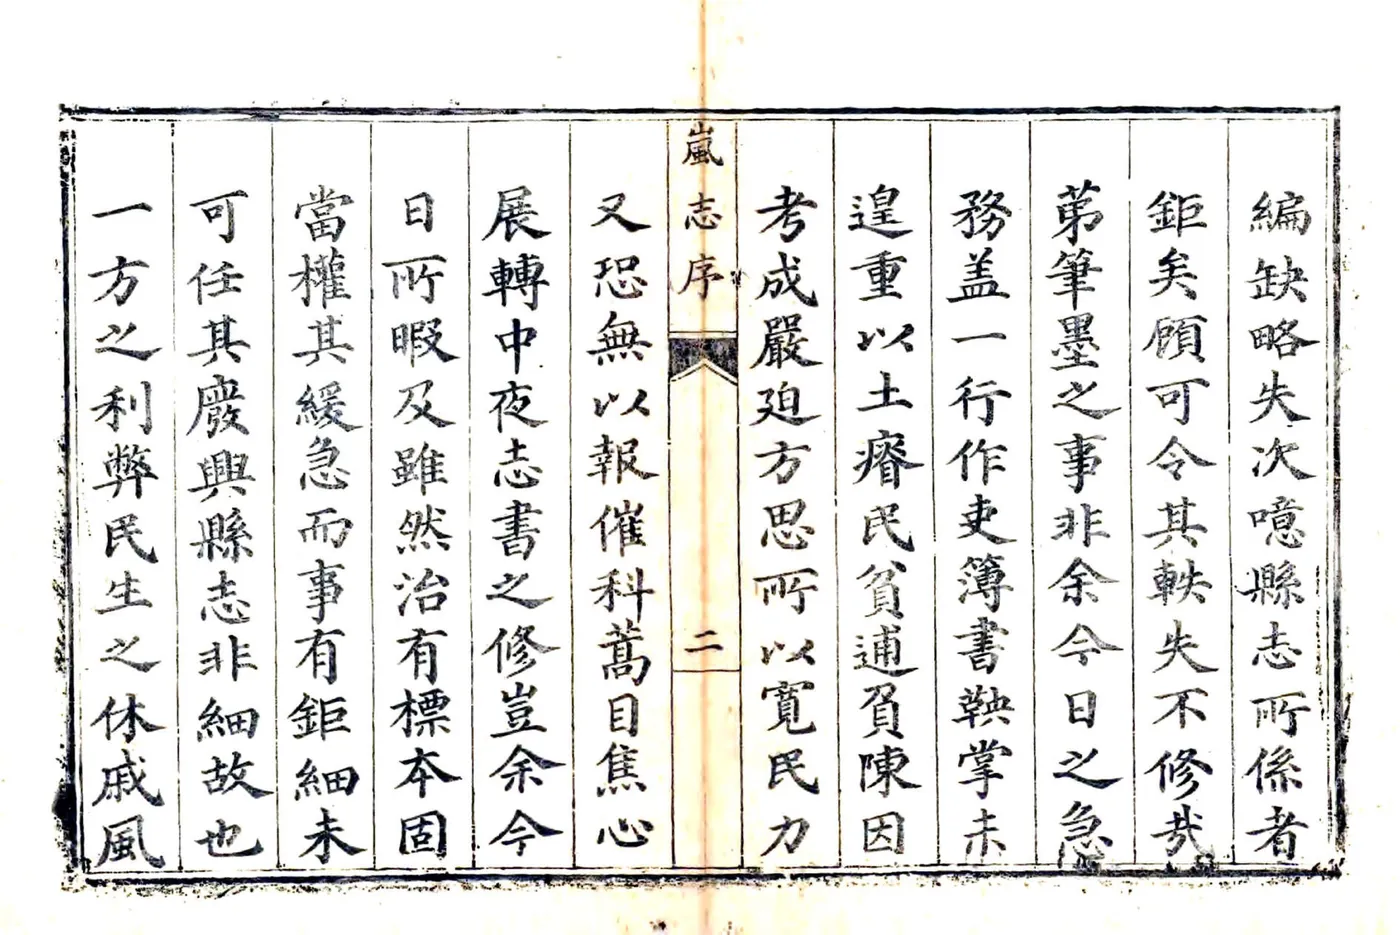 編缺略失次噫縣志所係者
鉅矣顧可令其軼失不修哉
苐筆墨之事非余今日之急
務盖一行作吏簿書鞅掌未
遑重以土瘠民貧逋負陳因
考成嚴廹方思所以寬民力
嵐志序
二
又恐無以報催科蒿目焦心
展轉中夜志書之修豈余今
日所暇及雖然治有標本固
當權其緩急而事有鉅細未
可任其廢興縣志非細故也
一方之利弊民生之休戚風